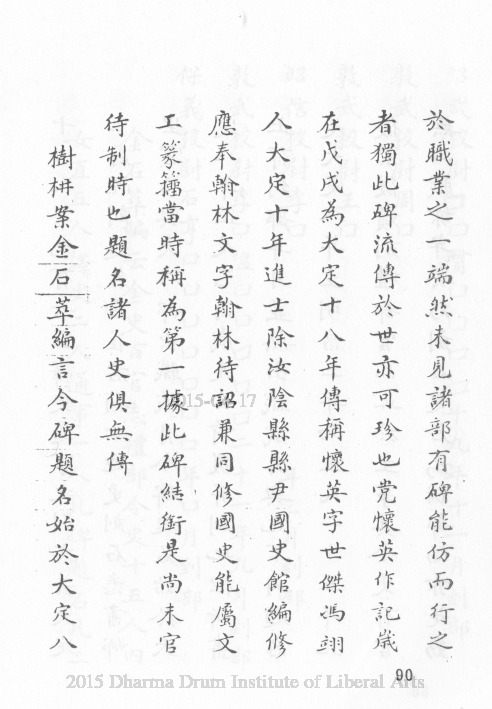 於職業之一端然未見諸部有碑能仿而行之
者獨此碑流傳於世亦可珍也党懷英作記歲
在戊戌為大定十八年傳稱懷英字世傑馮翊
人大定十年進士除汝陰縣縣尹國史館編修
應奉翰林文字翰林待詔兼同修國史能屬文
工篆籒當時稱為第一據此碑結銜是尚未官
待制時也題名諸人史俱無傳
樹枏案金石萃編言今碑題名始於大定八
90
2015 Dharma Drum Institute of Liberal Arts